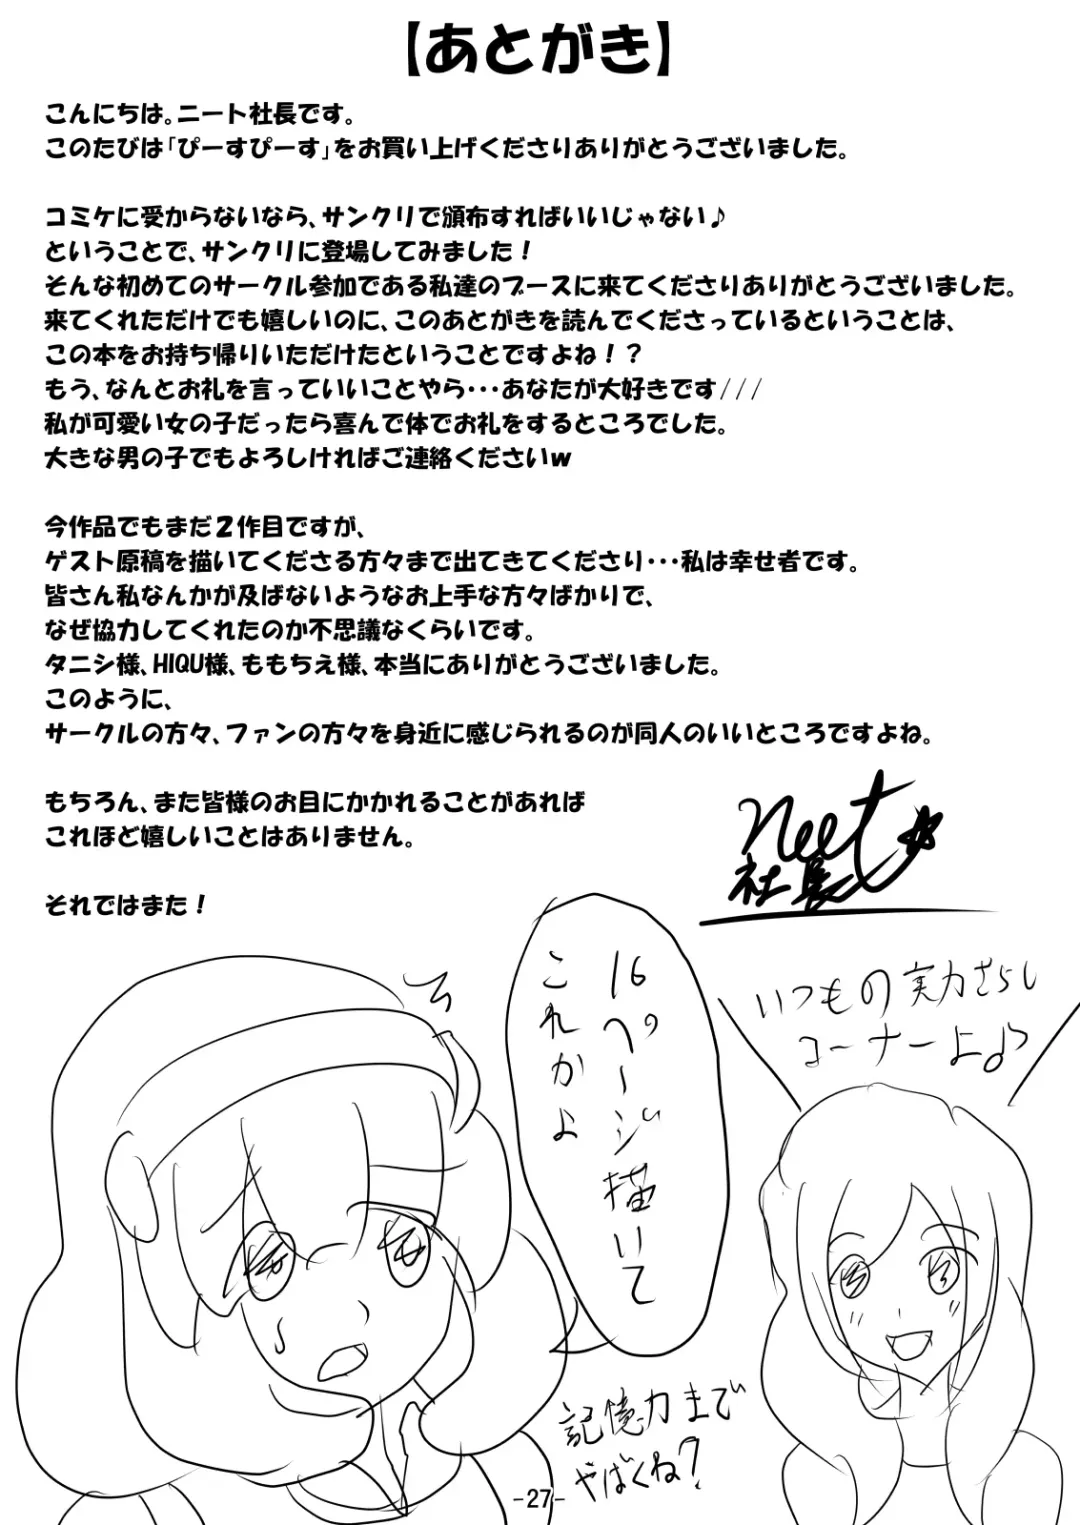 【あとがき】
こんにちは。ニート社長です。
このたびは「ぴーすぴーす」をお買い上げくださりありがとうございました。
コミケに受からないなら、サンクリで頒布すればいいじゃない♪
ということで、サンクリに登場してみました!
そんな初めてのサークル参加である私達のブースに来てくださりありがとうございました。
来てくれただけでも嬉しいのに、このあとがきを読んでくださっているということは、
この本をお持ち帰りいただけたということですよね!?
もう、なんとお礼を言っていいことやら・・・あなたが大好きです///
私が可愛い女の子だったら喜んで体でお礼をするところでした。
大きな男の子でもよろしければご連絡くださいw
今作品でもまだ2作目ですが、
ゲスト原稿を描いてくださる方々まで出てきてくださり・・・私は幸せ者です。
皆さん私なんかが及ばないようなお上手な方々ばかりで、
なぜ協力してくれたのか不思議なくらいです。
タニシ様、HIQU様、ももちえ様、本当にありがとうございました。
このように、
サークルの方々、ファンの方々を身近に感じられるのが同人のいいところですよね。
もちろん、また皆様のお目にかかれることがあれば
これほど嬉しいことはありません。
それではまた!
neet
社長
いつもの実力さらし
コーナーよ♪
16ページ描いて
これかよ
記憶力まで
やばくね?
-27-